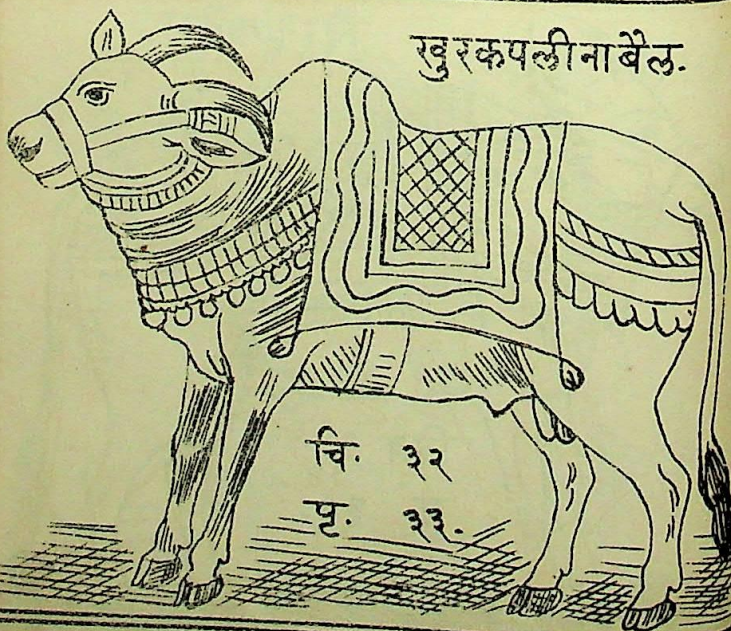 खुरकपलीना बैल.
चि. ३२
पृ. ३३.